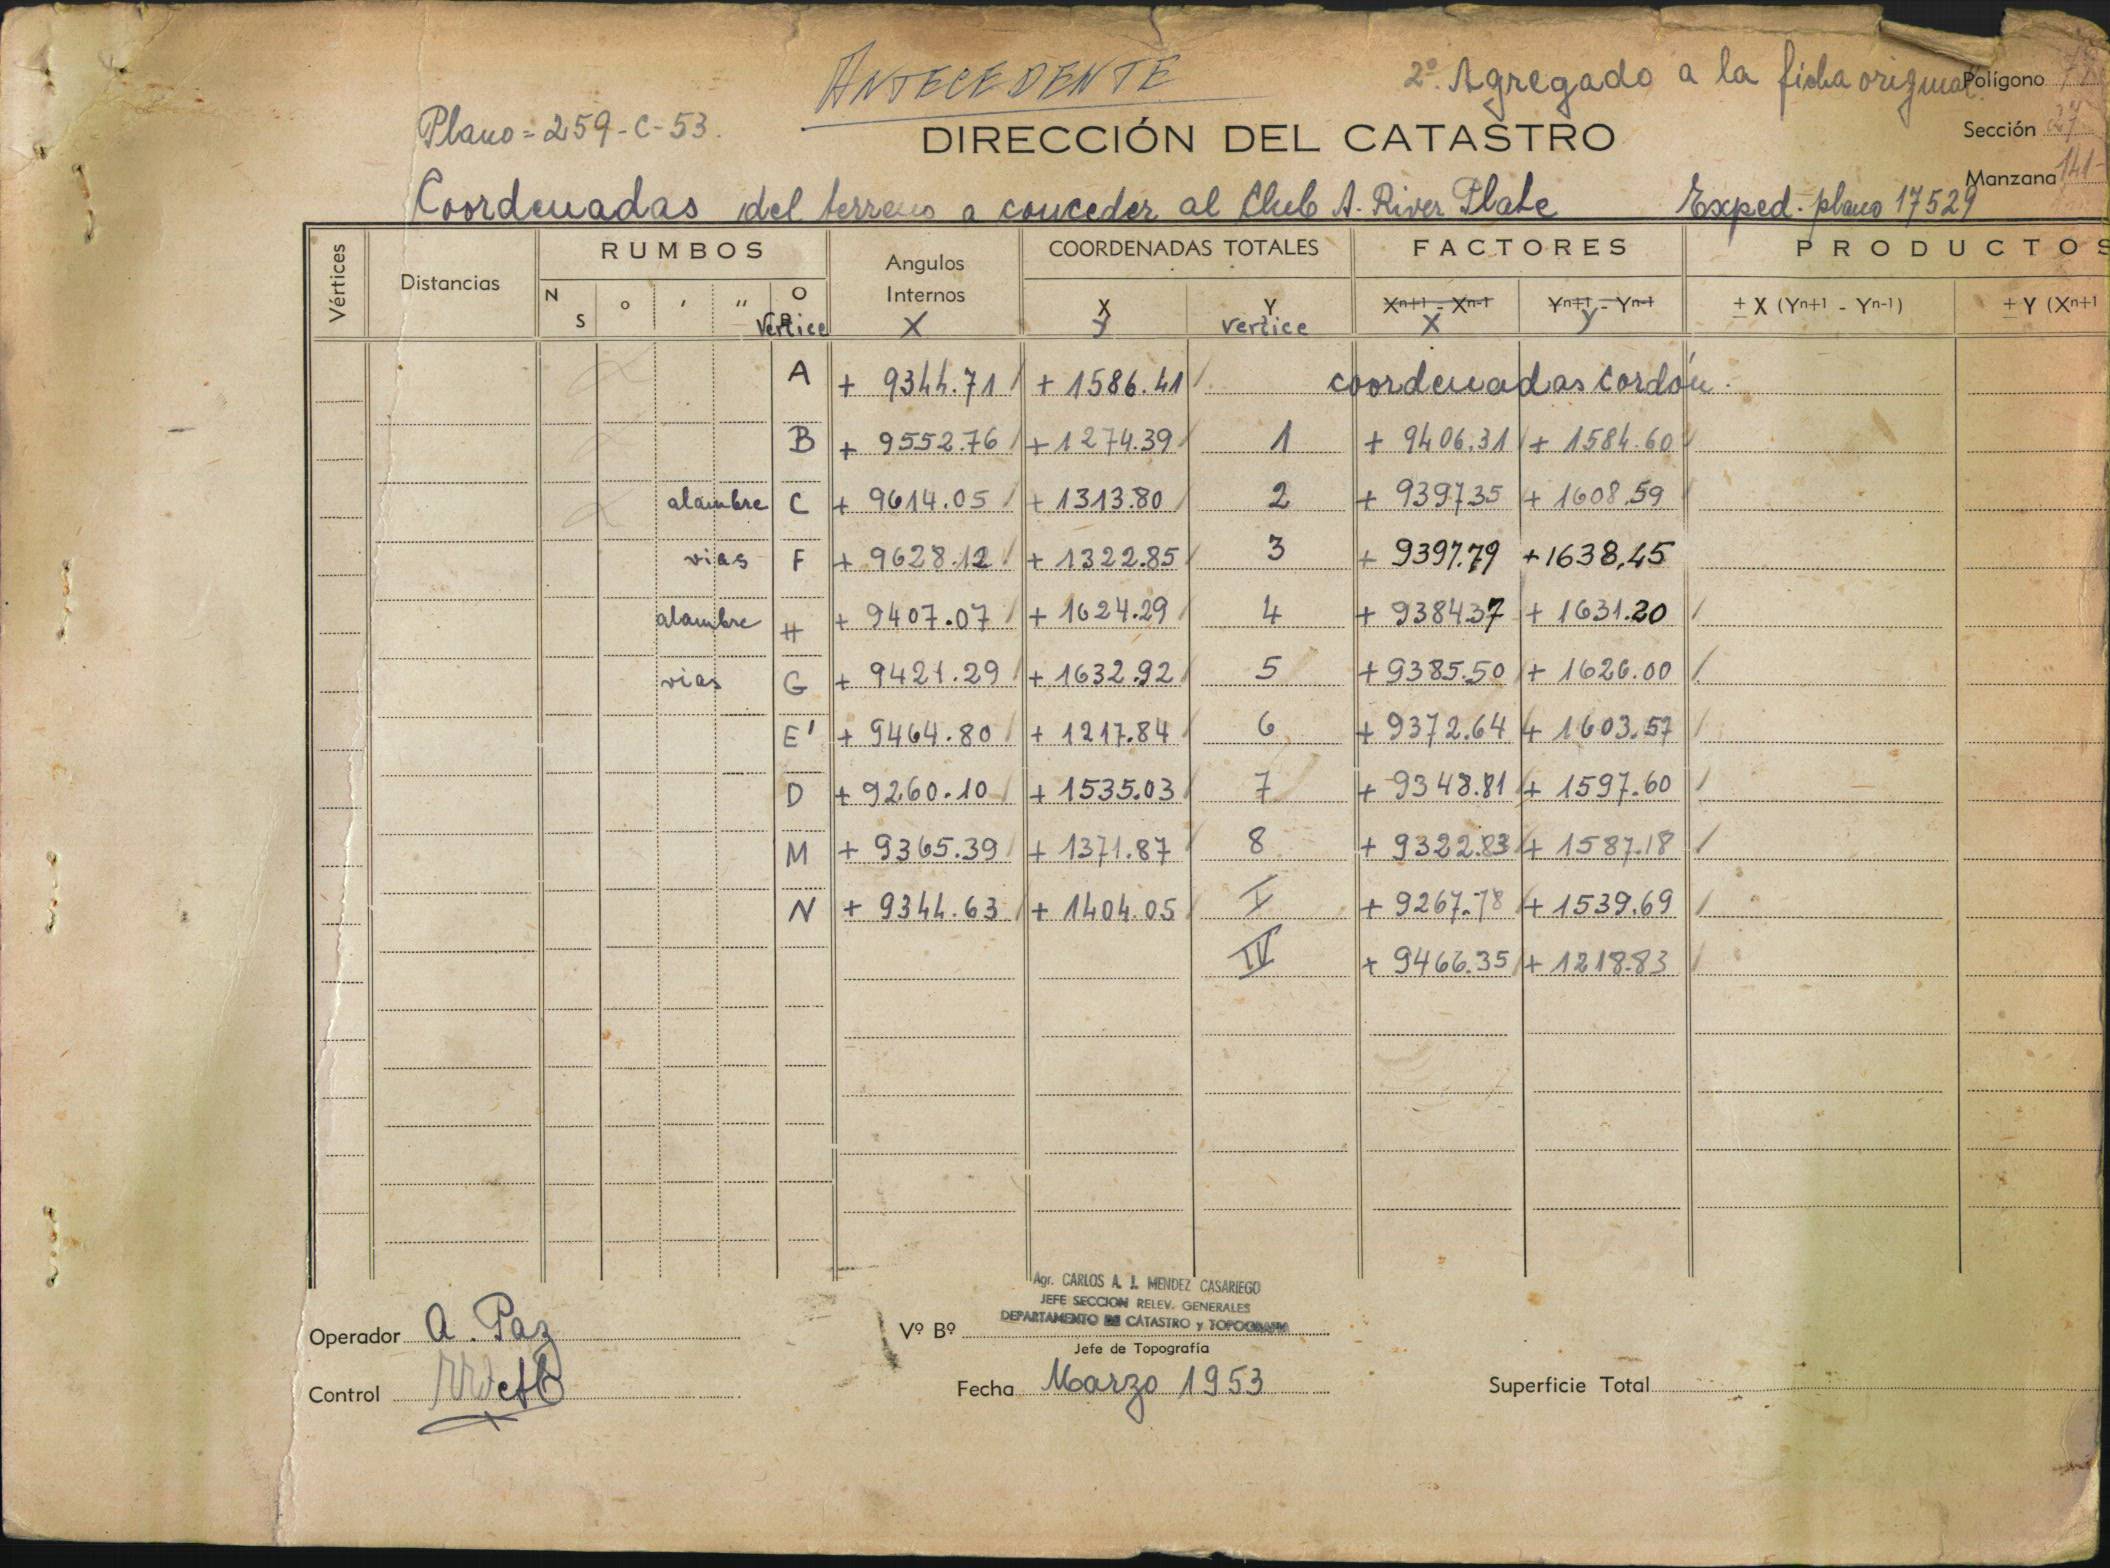 ANTECEDENTE
2º Agregado a la ficha original.
Polígono
Plano = 259-C-53.
DIRECCIÓN DEL CATASTRO
Sección 27
Manzana 141-
Coordenadas del terreno a conceder al Club A. River Plate Exped. plano 17529
Vértices Distancias RUMBOS Angulos Internos COORDENADAS TOTALES FACTORES PRODUCTOS
N S o ' " O Vertice X X y Y vertice Xn+1 - Xn-1 X Yn+1 - Yn-1 y ± X (Yn+1 - Yn-1) ± Y (Xn+1
A + 9344.71 + 1586.41 coordenadas cordón.
B + 9552.76 + 1274.39 1 + 9406.31 + 1584.60
alambre C + 9614.05 + 1313.80 2 + 9397.35 + 1608.59
vias F + 9628.12 + 1322.85 3 + 9397.79 + 1638,45
alambre H + 9407.07 + 1624.29 4 + 9384.37 + 1631.20
vias G + 9421.29 + 1632.92 5 + 9385.50 + 1626.00
E' + 9464.80 + 1217.84 6 + 9372.64 + 1603.57
D + 9260.10 + 1535.03 7 + 9348.81 + 1597.60
M + 9365.39 + 1371.87 8 + 9322.83 + 1587.18
N + 9344.63 + 1404.05 I + 9267.78 + 1539.69
IV + 9466.35 + 1218.83
Agr. CARLOS A. J. MENDEZ CASARIEGO
JEFE SECCION RELEV. GENERALES
DEPARTAMENTO DE CATASTRO y TOPOGRAFIA
Operador A. Paz Vº Bº
Jefe de Topografía
Control Fecha Marzo 1953 Superficie Total